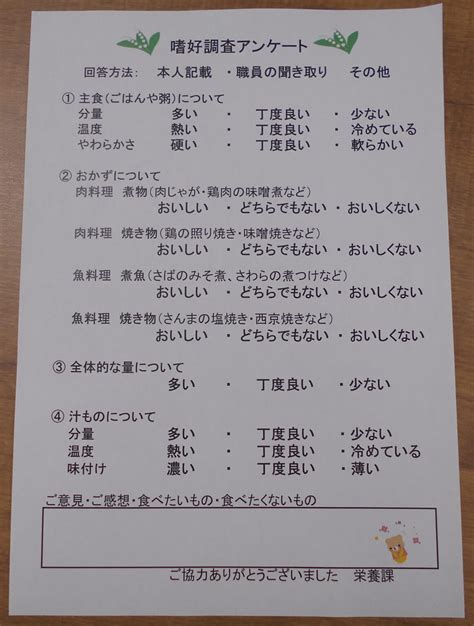 嗜好調査アンケート
回答方法: 本人記載 ・職員の聞き取り その他
① 主食(ごはんや粥)について
分量 多い ・ 丁度良い ・ 少ない
温度 熱い ・ 丁度良い ・ 冷めている
やわらかさ 硬い ・ 丁度良い ・ 軟らかい
② おかずについて
肉料理 煮物(肉じゃが・鶏肉の味噌煮など)
おいしい ・ どちらでもない ・ おいしくない
肉料理 焼き物(鶏の照り焼き・味噌焼きなど)
おいしい ・ どちらでもない ・ おいしくない
魚料理 煮魚(さばのみそ煮、さわらの煮つけなど)
おいしい ・ どちらでもない ・ おいしくない
魚料理 焼き物(さんまの塩焼き・西京焼きなど)
おいしい ・ どちらでもない ・ おいしくない
③ 全体的な量について
多い ・ 丁度良い ・ 少ない
④ 汁ものについて
分量 多い ・ 丁度良い ・ 少ない
温度 熱い ・ 丁度良い ・ 冷めている
味付け 濃い ・ 丁度良い ・ 薄い
ご意見・ご感想・食べたいもの・食べたくないもの
ご協力ありがとうございました 栄養課